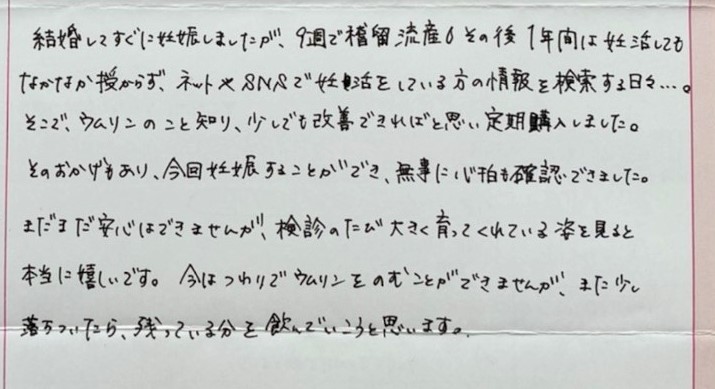 結婚してすぐに妊娠しましたが、9週で稽留流産。その後1年間は妊活しても
なかなか授からず、ネットやSNSで妊活をしている方の情報を検索する日々…。
そこで、ウムリンのこと知り、少しでも改善できればと思い定期購入しました。
そのおかげもあり、今回妊娠することができ、無事に心拍も確認できました。
まだまだ安心はできませんが、検診のたび大きく育ってくれている姿を見ると
本当に嬉しいです。今はつわりでウムリンをのむことができませんが、また少し
落ちついたら、残っている分を飲んでいこうと思います。